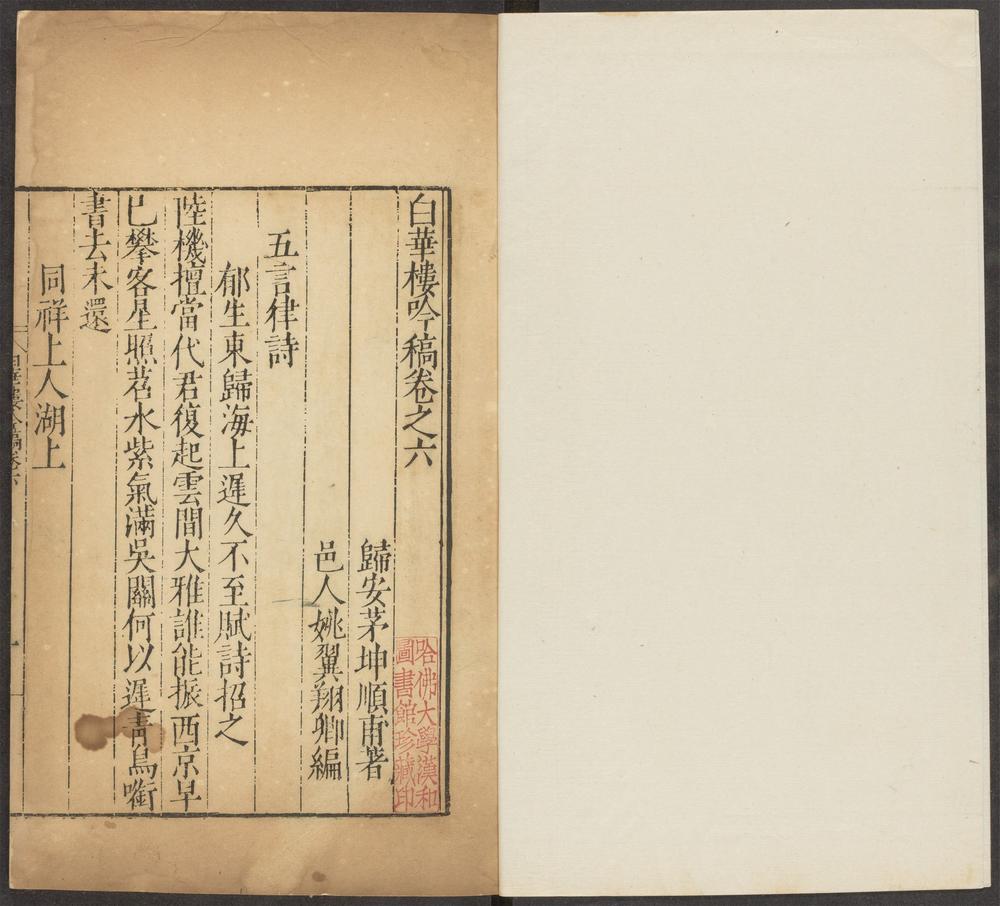 白華樓吟稿卷之六
歸安茅坤順甫著
邑人姚翼翔卿編
五言律詩
郁生東歸海上遲久不至賦詩招之
陸機擅當代君復起雲間大雅誰能振西京早
已攀客星照苕水紫氣滿吳關何以遲青鳥啣
書去未還
同祥上人湖上
哈佛大學漢和
圖書館珍藏印